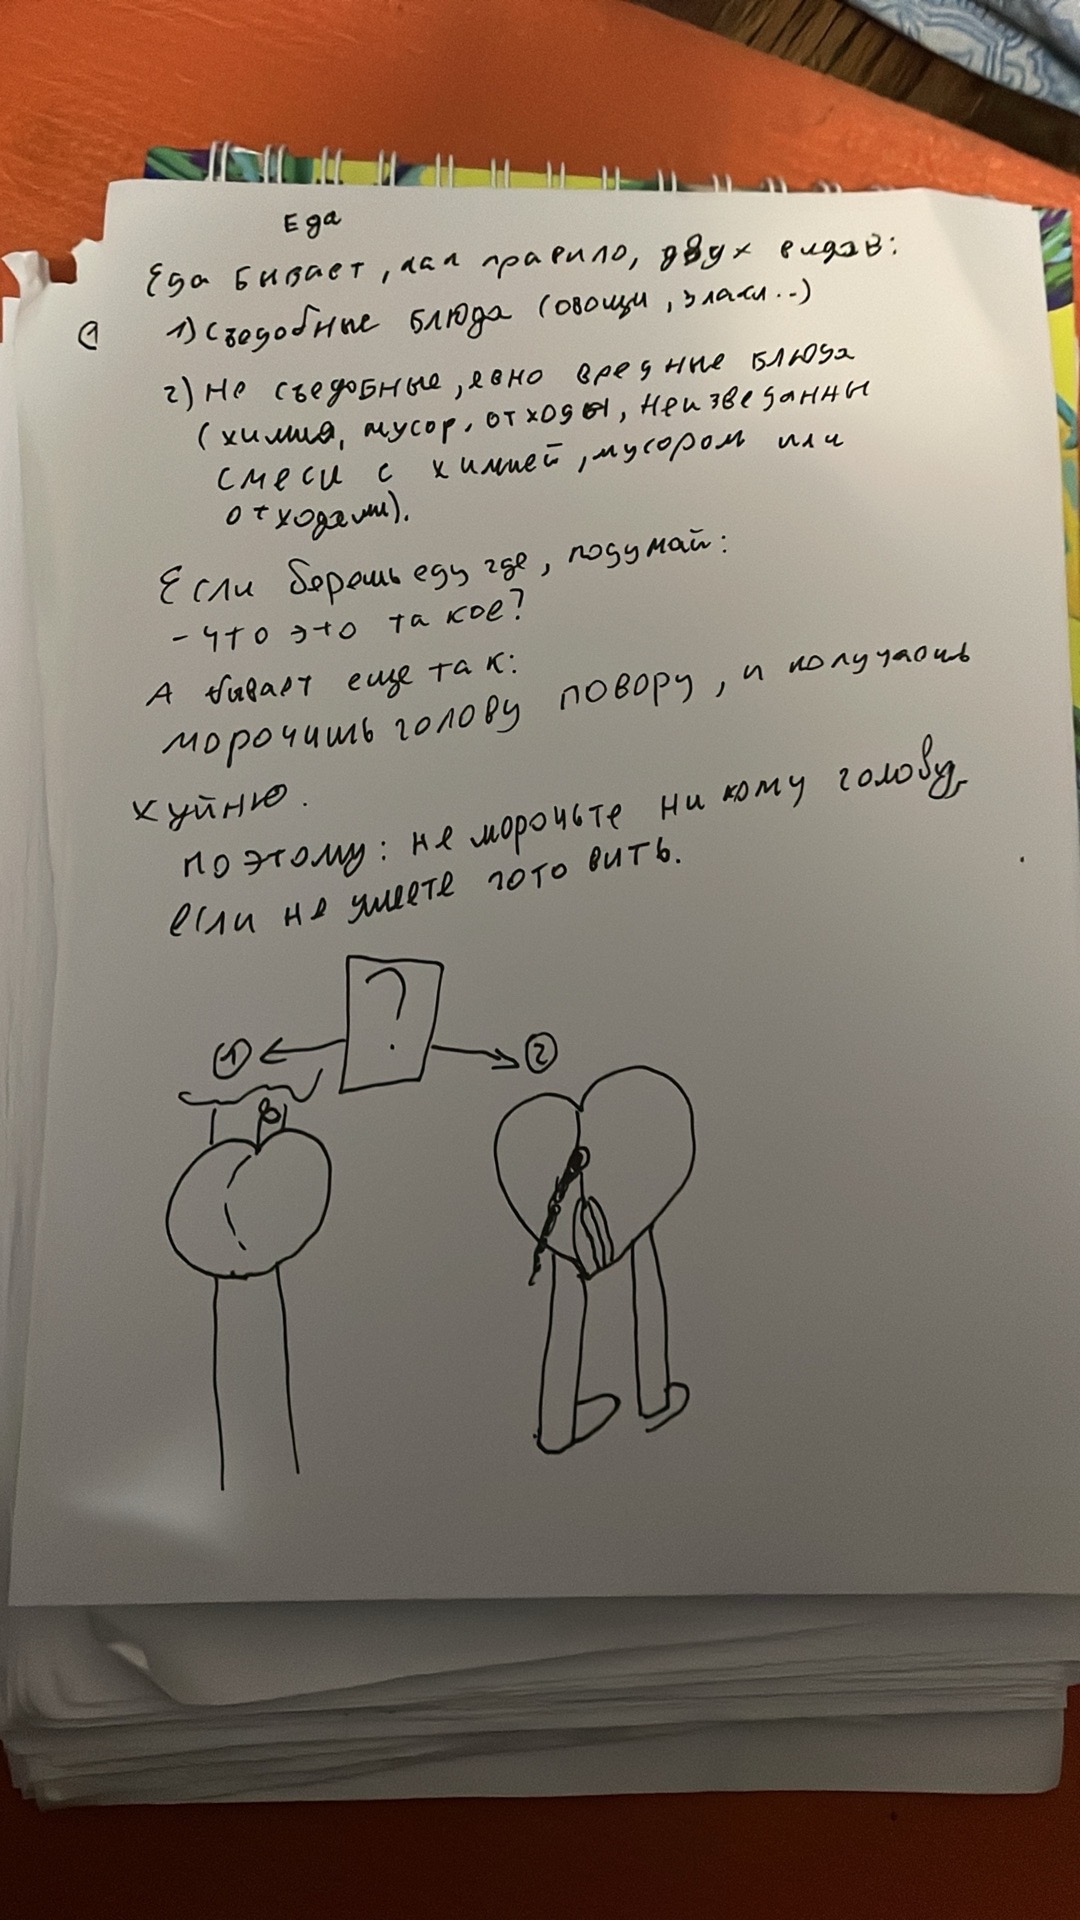 Еда
Еда бывает, как правило, двух видов:
1) съедобные блюда (овощи, злаки...)
2) не съедобные, явно вредные блюда
(химия, мусор, отходы, неизведанны
смеси с химией, мусором или
отходами).
Если берешь еду где, подумай:
- что это такое?
А бывает еще так:
морочишь голову повору, и получаешь
хуйню.
поэтому: не морочьте ни кому голову,
если не умеете готовить.
?
1 2